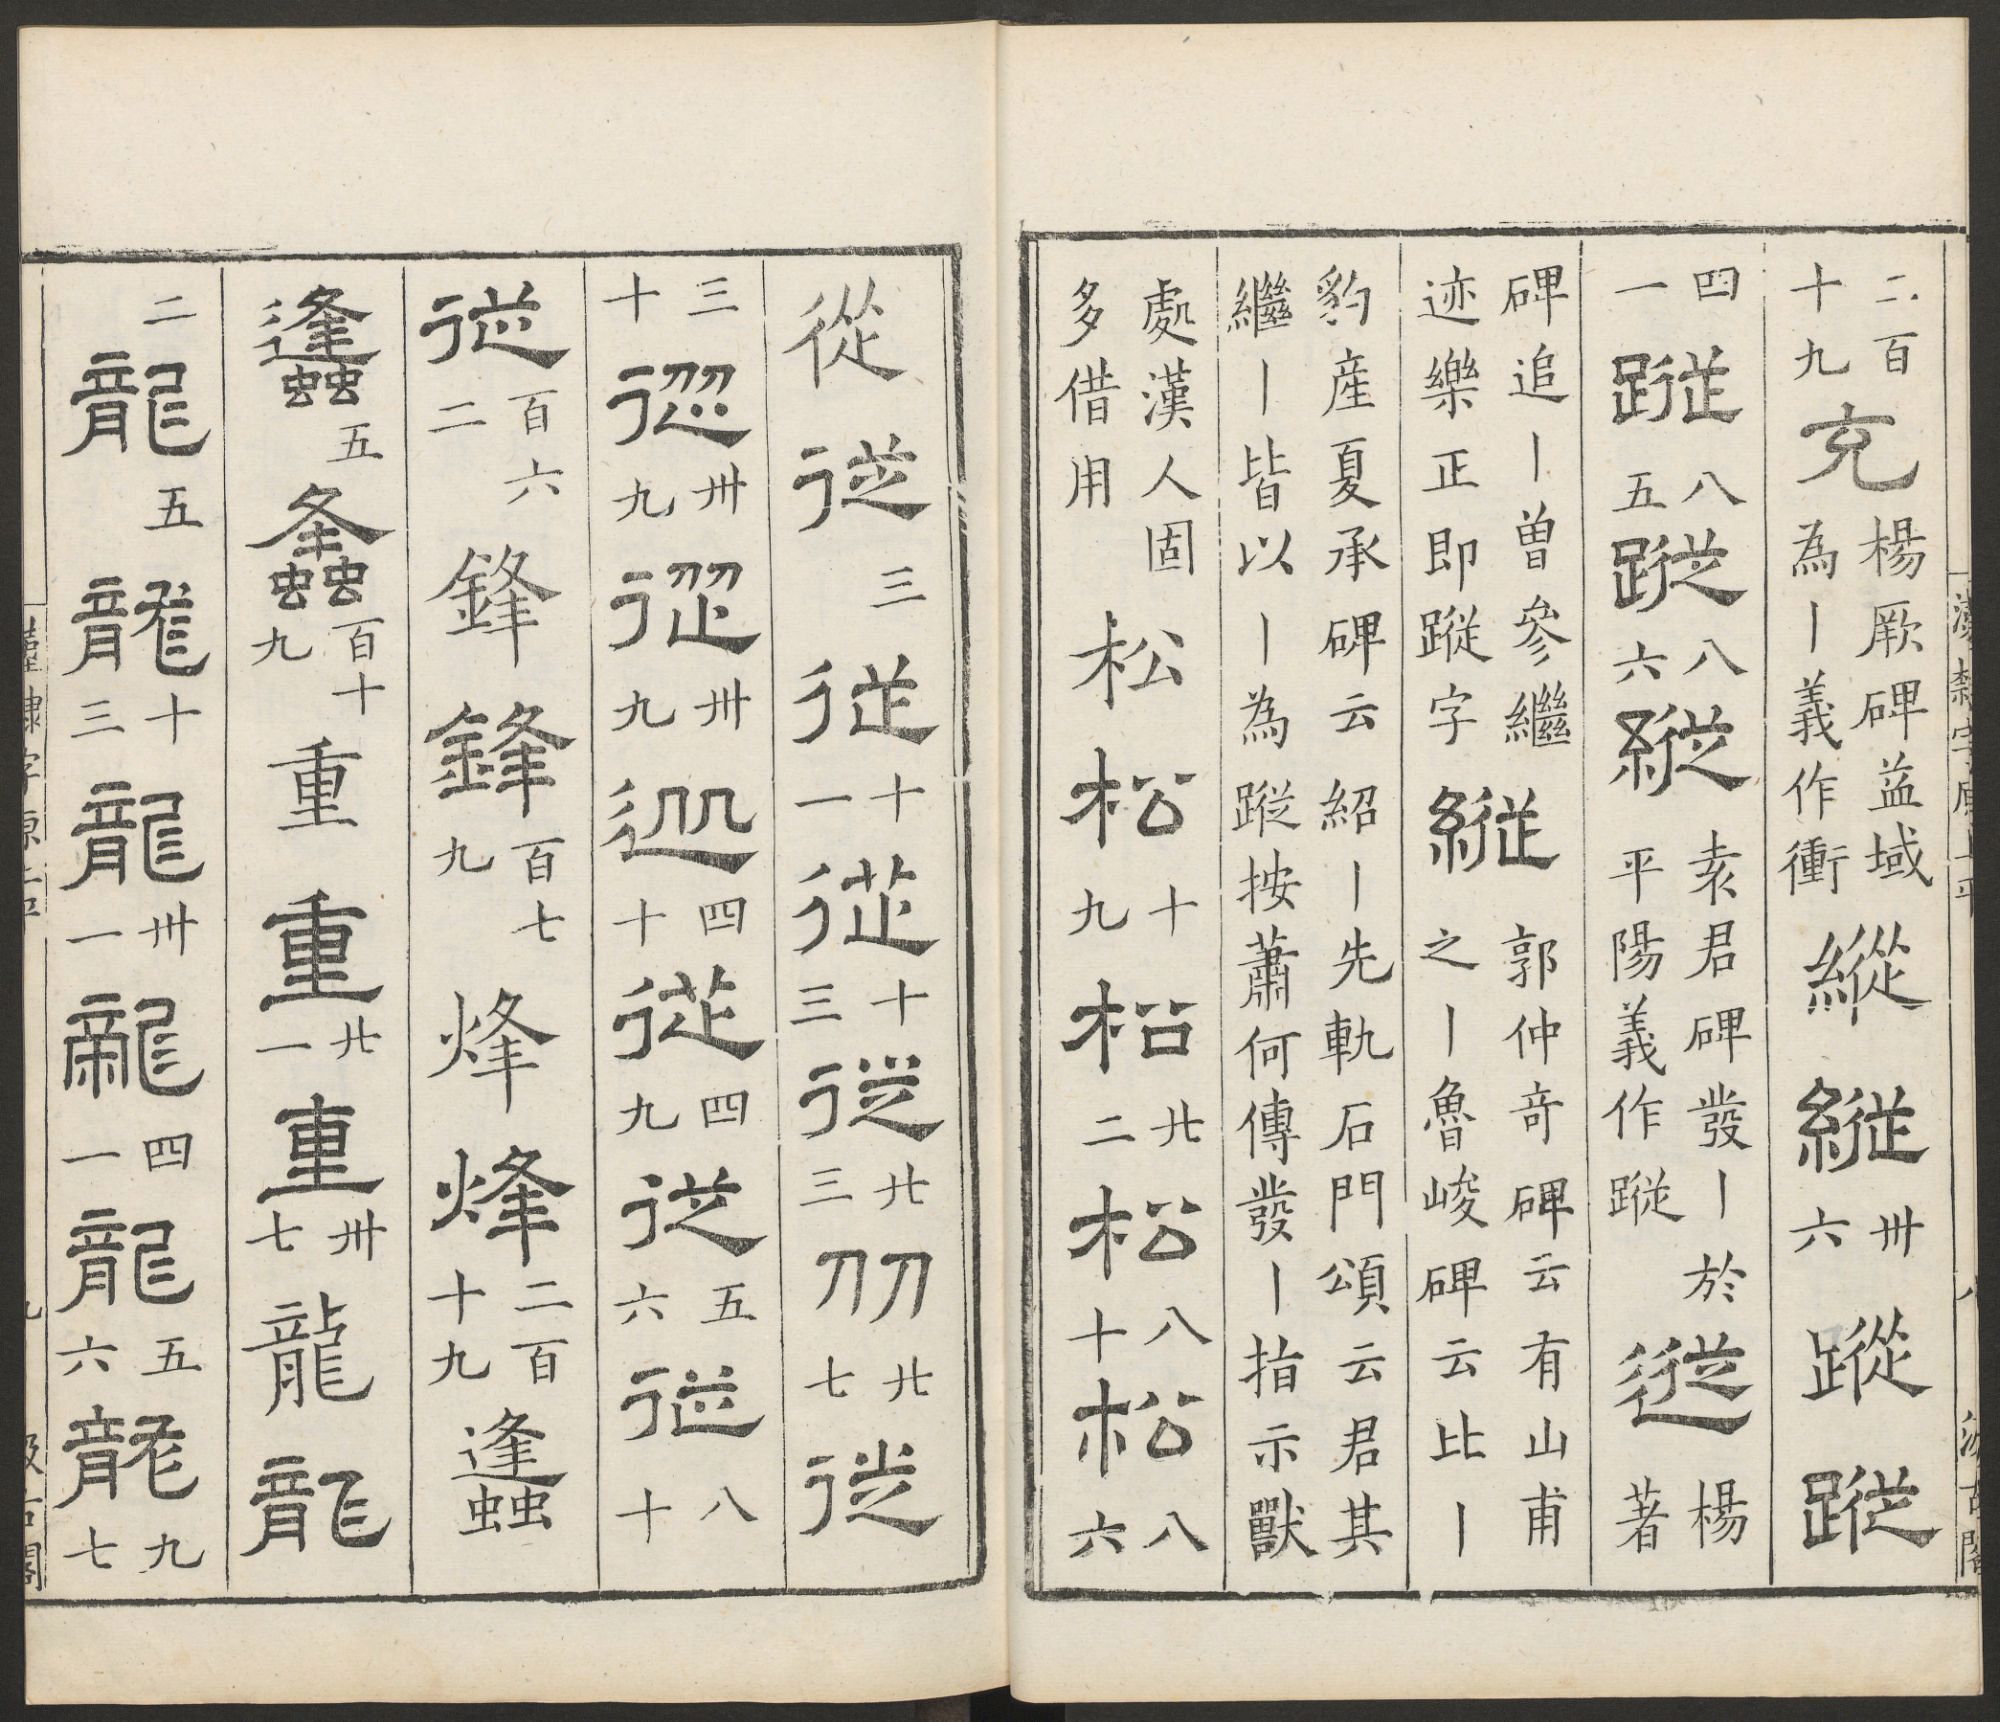 漢隸字原上平　八　汲古閣
二百十九充楊厥碑益域為丨義作衝縱縱卅六蹤蹤
四一蹤八五蹤八六縱袁君碑發丨於平陽義作蹤從楊著
碑追丨曾參繼迹樂正即蹤字縱郭仲奇碑云有山甫之丨魯峻碑云比丨
豹產夏承碑云紹丨先軌石門頌云君其繼丨皆以丨為蹤按蕭何傳發丨指示獸
處漢人固多借用松松十九松廿二松八十松八六
從從三從十一從十三從廿三刕廿七從
三十從卅九從卅九從四十從四九從五六從八十
從百六二鋒鋒百七九烽烽二百十九蠭
蠭五蠭百十九重重廿一重卅七龍龍
二龍五龍十三龍卅一龍四一龍五六龍九七
漢隸字原上平　九　汲古閣